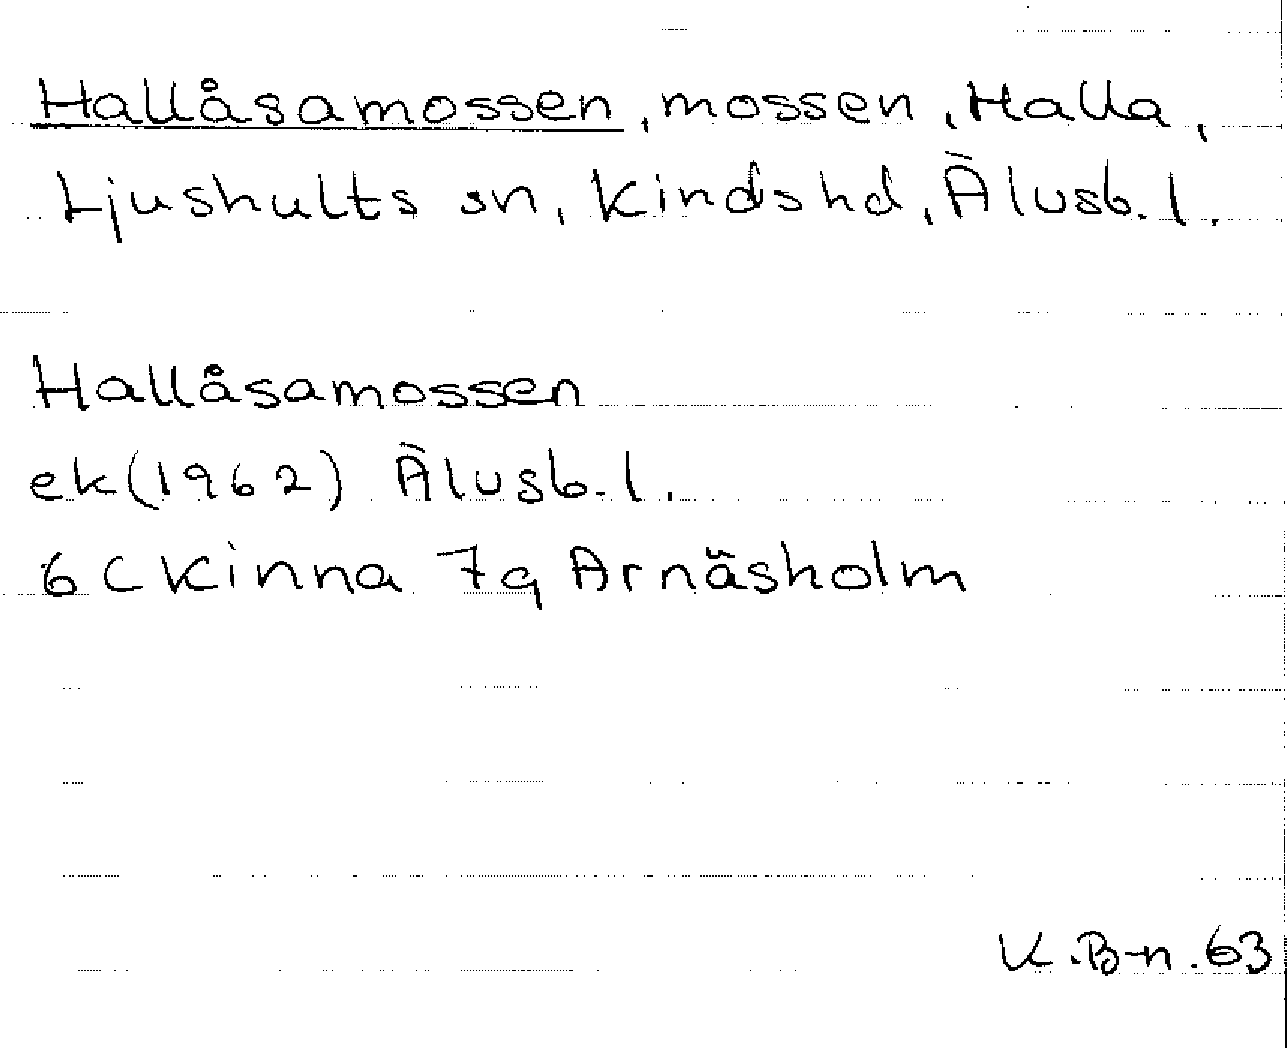 Hallåsamossen, mossen, Halla,
Ljushults sn, Kinds hd, Älvsb. l.
Hallåsamossen
ek(1962) Älvsb. l.
6 C Kinna 7g Arnäsholm
K. B-n. 63